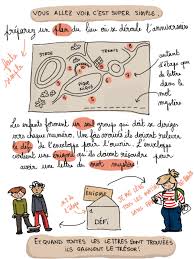 VOUS ALLEZ VOIR C'EST SUPER SIMPLE
préparez un plan du lieu où se déroule l'anniversaire
STADE
TRONCS
autant
d'étape que
de lettres
dans le
mot
mystère
Les enfants forment un seul groupe qui doit se diriger
vers chaque numéro. Une fois arrivés ils doivent relever
le défi de l'enveloppe pour l'ouvrir. L'enveloppe
contient une énigme qu'ils doivent résoudre pour
avoir une lettre du mot mystère.
ÉNIGME
DÉFI
ET QUAND TOUTES LES LETTRES SONT TROUVÉES
ILS GAGNENT LE TRÉSOR!